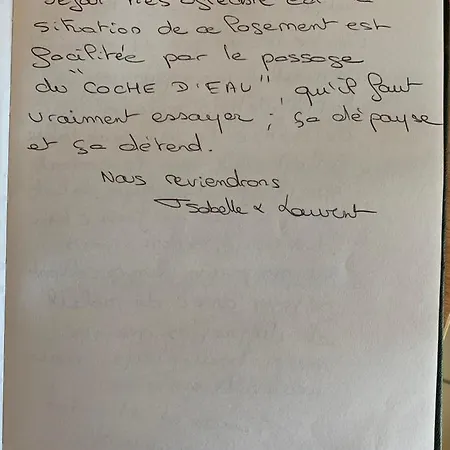 séjour très agréable car la
situation de ce logement est
facilitée par le passage
du "COCHE D'EAU", qu'il faut
vraiment essayer ; ça dépayse
et ça détend.
Nous reviendrons
Isabelle & Laurent